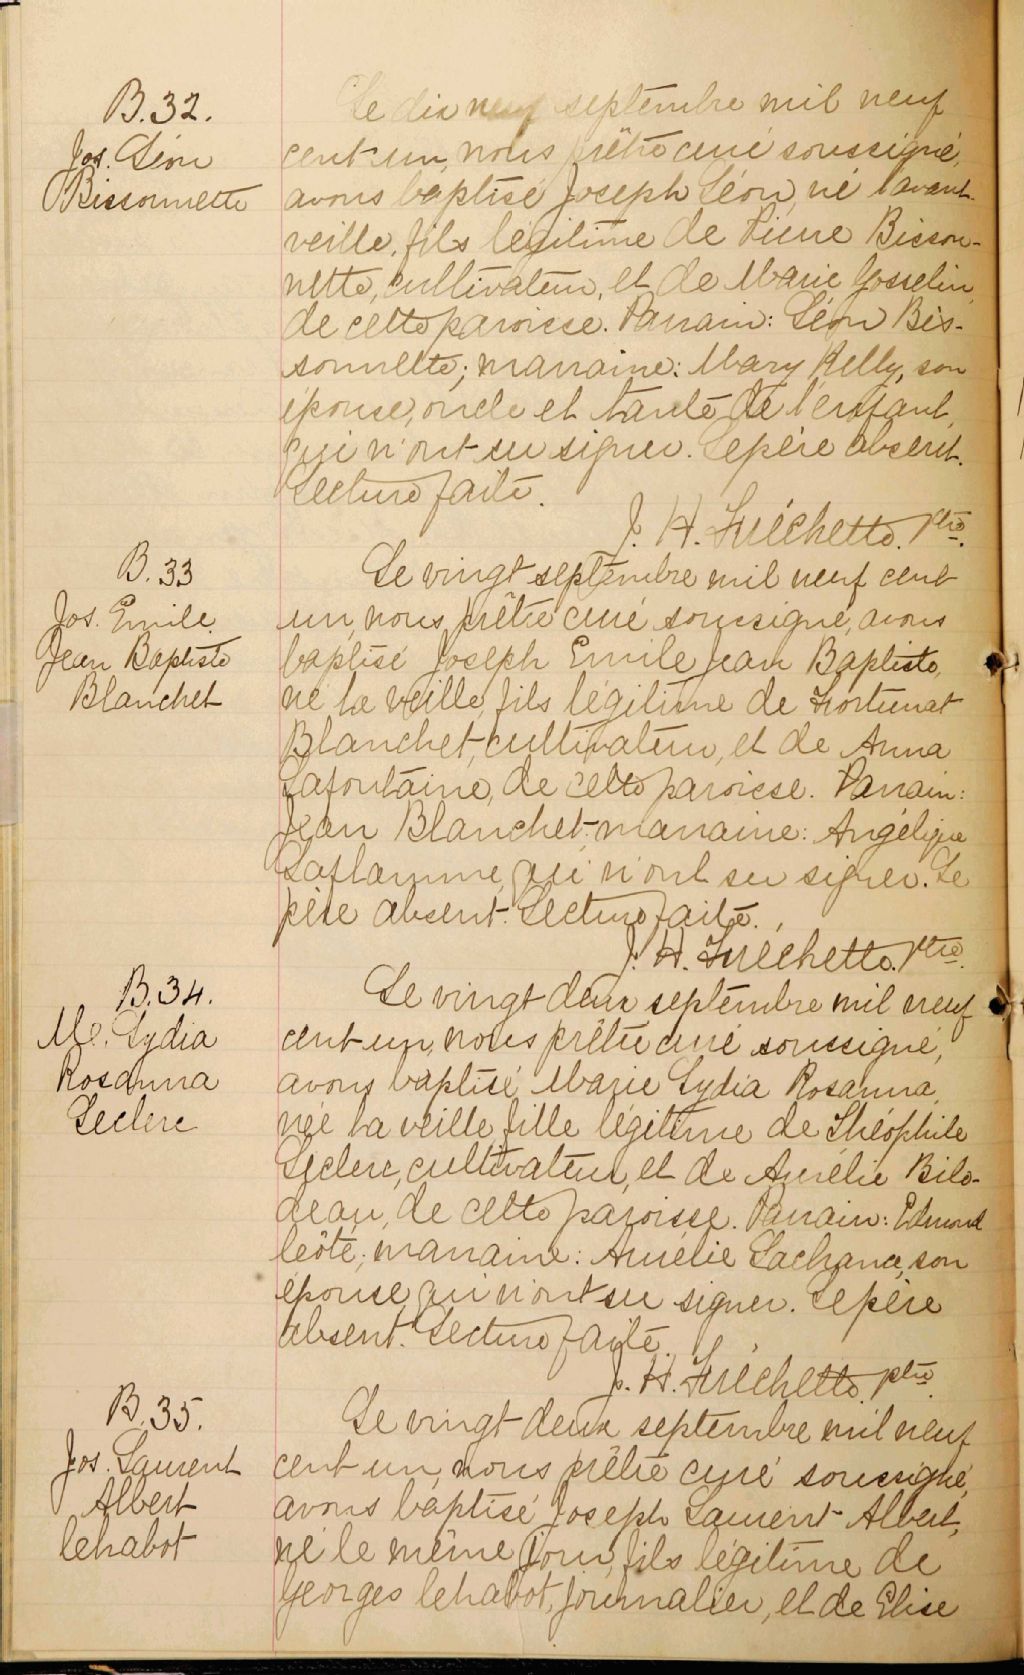 B.32.
Jos. Léon
Bissonnette
Le dix neuf septembre mil neuf
cent un, nous prêtre curé soussigné,
avons baptisé Joseph Léon, né l'avant-
veille, fils légitime de Pierre Bisson-
nette, cultivateur, et de Marie Gosselin,
de cette paroisse. Parrain: Léon Bis-
sonnette; marraine: Mary Kelly, son
épouse, oncle et tante de l'enfant,
qui n'ont su signer. Le père absent.
Lecture faite.
J. H. Fréchette. Ptre.
B. 33
Jos. Emile
Jean Baptiste
Blanchet
Le vingt septembre mil neuf cent
un, nous, prêtre curé soussigné, avons
baptisé Joseph Emile Jean Baptiste,
né la veille, fils légitime de Fortunat
Blanchet, cultivateur, et de Anna
Lafontaine, de cette paroisse. Parrain:
Jean Blanchet; marraine: Angélique
Laflamme, qui n'ont su signer. Le
père absent. Lecture faite.
J. H. Fréchette. Ptre.
B.34.
Me. Lydia
Rosanna
Leclerc
Le vingt deux septembre mil neuf
cent un, nous prêtre curé soussigné,
avons baptisé Marie Lydia Rosanna,
née la veille, fille légitime de Théophile
Leclerc, cultivateur, et de Aurélie Bilo-
deau, de cette paroisse. Parrain: Edmond
Côté; marraine: Aurélie Lachance, son
épouse, qui n'ont su signer. Le père
absent. Lecture faite.
J. H. Fréchette. ptre.
B.35.
Jos. Laurent
Albert
Chabot
Le vingt deux septembre mil neuf
cent un, nous prêtre curé soussigné,
avons baptisé Joseph Laurent Albert,
né le même jour, fils légitime de
Georges Chabot, journalier, et de Elise